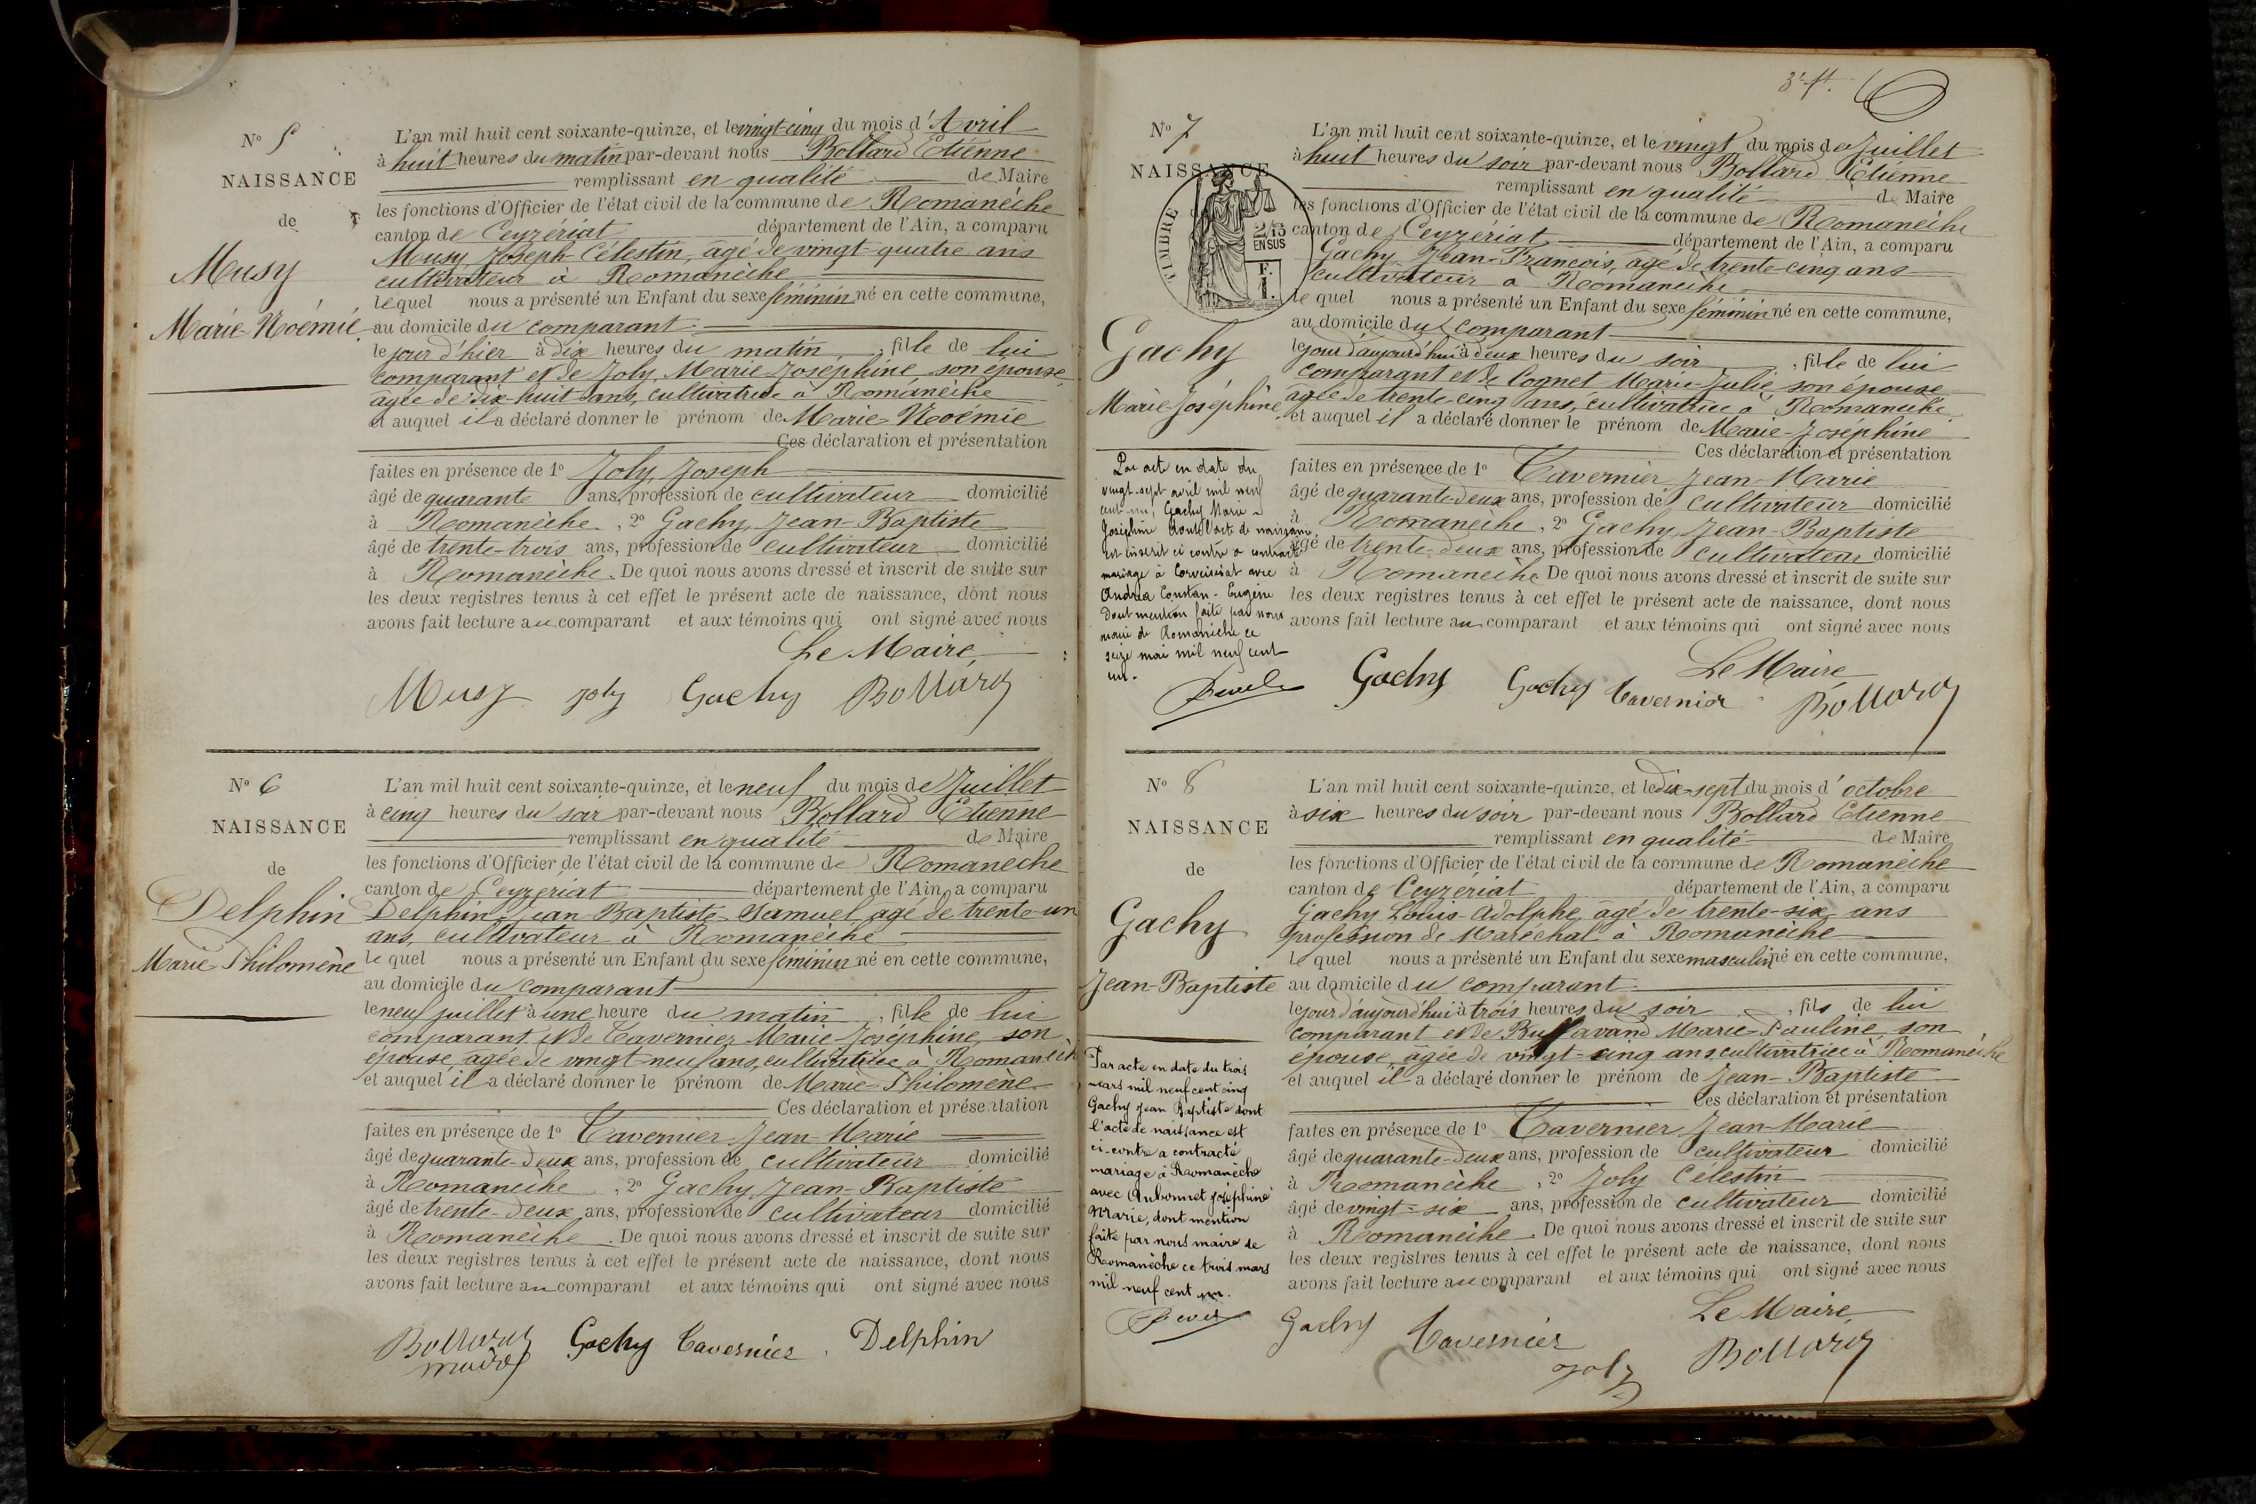 N° 5
NAISSANCE
de
Musy
Marie-Noémie
L'an mil huit cent soixante-quinze, et le vingt-cinq du mois d'Avril
à huit heures du matin par-devant nous Bollard Etienne
remplissant en qualité de Maire
les fonctions d'Officier de l'état civil de la commune de Romanèche
canton de Ceyzériat département de l'Ain, a comparu
Musy Joseph Célestin, âgé de vingt-quatre ans
cultivateur à Romanèche
lequel nous a présenté un Enfant du sexe féminin né en cette commune,
au domicile du comparant
le jour d'hier à dix heures du matin, fille de lui
comparant et de Joly, Marie Joséphine son épouse
âgée de dix-huit ans, cultivatrice à Romanèche
et auquel il a déclaré donner le prénom de Marie-Noémie
Ces déclaration et présentation
faites en présence de 1° Joly, Joseph
âgé de quarante ans, profession de cultivateur domicilié
à Romanèche, 2° Gachy, Jean-Baptiste
âgé de trente-trois ans, profession de cultivateur domicilié
à Romanèche. De quoi nous avons dressé et inscrit de suite sur
les deux registres tenus à cet effet le présent acte de naissance, dont nous
avons fait lecture au comparant et aux témoins qui ont signé avec nous
Le Maire,
Musy joly Gachy Bollard
N° 6
NAISSANCE
de
Delphin
Marie-Philomène
L'an mil huit cent soixante-quinze, et le neuf du mois de Juillet
à cinq heures du soir par-devant nous Bollard Etienne
remplissant en qualité de Maire
les fonctions d'Officier de l'état civil de la commune de Romanèche
canton de Ceyzeriat département de l'Ain, a comparu
Delphin, Jean-Baptiste-Samuel, âgé de trente-un
ans, cultivateur à Romanèche
le quel nous a présenté un Enfant du sexe féminin né en cette commune,
au domicile du comparant
le neuf juillet à une heure du matin, fille de lui
comparant et de Tavernier Marie-Joséphine, son
épouse âgée de vingt-neuf ans, cultivatrice à Romanèche
et auquel il a déclaré donner le prénom de Marie-Philomène
Ces déclaration et présentation
faites en présence de 1° Tavernier Jean-Marie
âgé de quarante-deux ans, profession de cultivateur domicilié
à Romanèche, 2° Gachy Jean-Baptiste
âgé de trente-deux ans, profession de cultivateur domicilié
à Romanèche. De quoi nous avons dressé et inscrit de suite sur
les deux registres tenus à cet effet le présent acte de naissance, dont nous
avons fait lecture au comparant et aux témoins qui ont signé avec nous
Bollard Gachy Tavernier Delphin
maire
3e ft.
N° 7
NAISSANCE
TIMBRE
2/10 EN SUS
Gachy
Marie-Joséphine
Par acte en date du
vingt-sept avril mil neuf
cent-un, Gachy Marie-
Joséphine dont l'acte de naissance
est inscrit ci contre a contracté
mariage à Corveissiat avec
Andréa Constan-Eugène
dont mention faite par nous
maire de Romanèche ce
seize mai mil neuf cent
un.
L'an mil huit cent soixante-quinze, et le vingt du mois de Juillet
à huit heures du soir par-devant nous Bollard Etienne
remplissant en qualité de Maire
les fonctions d'Officier de l'état civil de la commune de Romanèche
canton de Ceyzeriat département de l'Ain, a comparu
Gachy Jean-François, âgé de trente-cinq ans
cultivateur à Romanèche
le quel nous a présenté un Enfant du sexe féminin né en cette commune,
au domicile du comparant
le jour d'aujourd'hui à deux heures du soir, fille de lui
comparant et de Cognet Marie-Julie son épouse
âgée de trente-cinq ans, cultivatrice à Romanèche
et auquel il a déclaré donner le prénom de Marie-Joséphine
Ces déclaration et présentation
faites en présence de 1° Tavernier Jean-Marie
âgé de quarante-deux ans, profession de cultivateur domicilié
à Romanèche, 2° Gachy Jean-Baptiste
âgé de trente-deux ans, profession de cultivateur domicilié
à Romanèche De quoi nous avons dressé et inscrit de suite sur
les deux registres tenus à cet effet le présent acte de naissance, dont nous
avons fait lecture au comparant et aux témoins qui ont signé avec nous
Le Maire
Gachy Gachy Tavernier Bollard
N° 8
NAISSANCE
de
Gachy
Jean-Baptiste
Par acte en date du trois
mars mil neuf cent cinq
Gachy Jean Baptiste dont
l'acte de naissance est
ci-contre a contracté
mariage à Romanèche
avec Anthonnet Joséphine
Marie, dont mention
faite par nous maire de
Romanèche ce trois mars
mil neuf cent
L'an mil huit cent soixante-quinze, et le dix-sept du mois d'octobre
à six heures du soir par-devant nous Bollard Etienne
remplissant en qualité de Maire
les fonctions d'Officier de l'état civil de la commune de Romanèche
canton de Ceyzériat département de l'Ain, a comparu
Gachy Louis-Adolphe, âgé de trente-six ans
profession de Maréchal à Romanèche
le quel nous a présenté un Enfant du sexe masculin né en cette commune,
au domicile du comparant
le jour d'aujourd'hui à trois heures du soir, fils de lui
comparant et de Buffavand Marie-Pauline, son
épouse, âgée de vingt-cinq ans cultivatrice à Romanèche
et auquel il a déclaré donner le prénom de Jean-Baptiste
Ces déclaration et présentation
faites en présence de 1° Tavernier Jean-Marie
âgé de quarante-deux ans, profession de cultivateur domicilié
à Romanèche, 2° Joly Célestin
âgé de vingt-six ans, profession de cultivateur domicilié
à Romanèche. De quoi nous avons dressé et inscrit de suite sur
les deux registres tenus à cet effet le présent acte de naissance, dont nous
avons fait lecture au comparant et aux témoins qui ont signé avec nous
Le Maire,
Gachy Tavernier joly Bollard